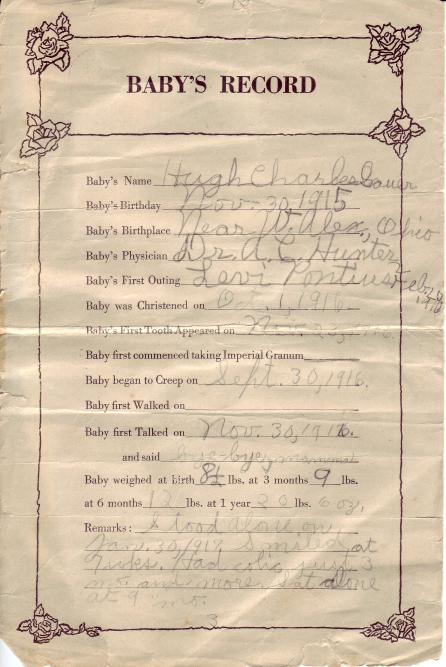 BABY'S RECORD
Baby's Name Hugh Charles Bauer
Baby's Birthday Nov-30, 1915
Baby's Birthplace Near W. Alex., Ohio
Baby's Physician Dr. A. C. Hunter
Baby's First Outing Levi Pontius Feb.
Baby was Christened on Oct. 1, 1916
Baby's First Tooth Appeared on Nov. 23, 1916
Baby first commenced taking Imperial Granum
Baby began to Creep on Sept. 30, 1916.
Baby first Walked on
Baby first Talked on Nov. 30, 1916.
and said bye-bye, mamma
Baby weighed at birth 8½ lbs. at 3 months 9 lbs.
at 6 months 12 lbs. at 1 year 20 lbs. 6 oz.
Remarks: Stood alone on
Jan. 30, 1917. Smiled at
7 wks. Had colic until 3
mo. and more. Sat alone
at 9 mo.
3